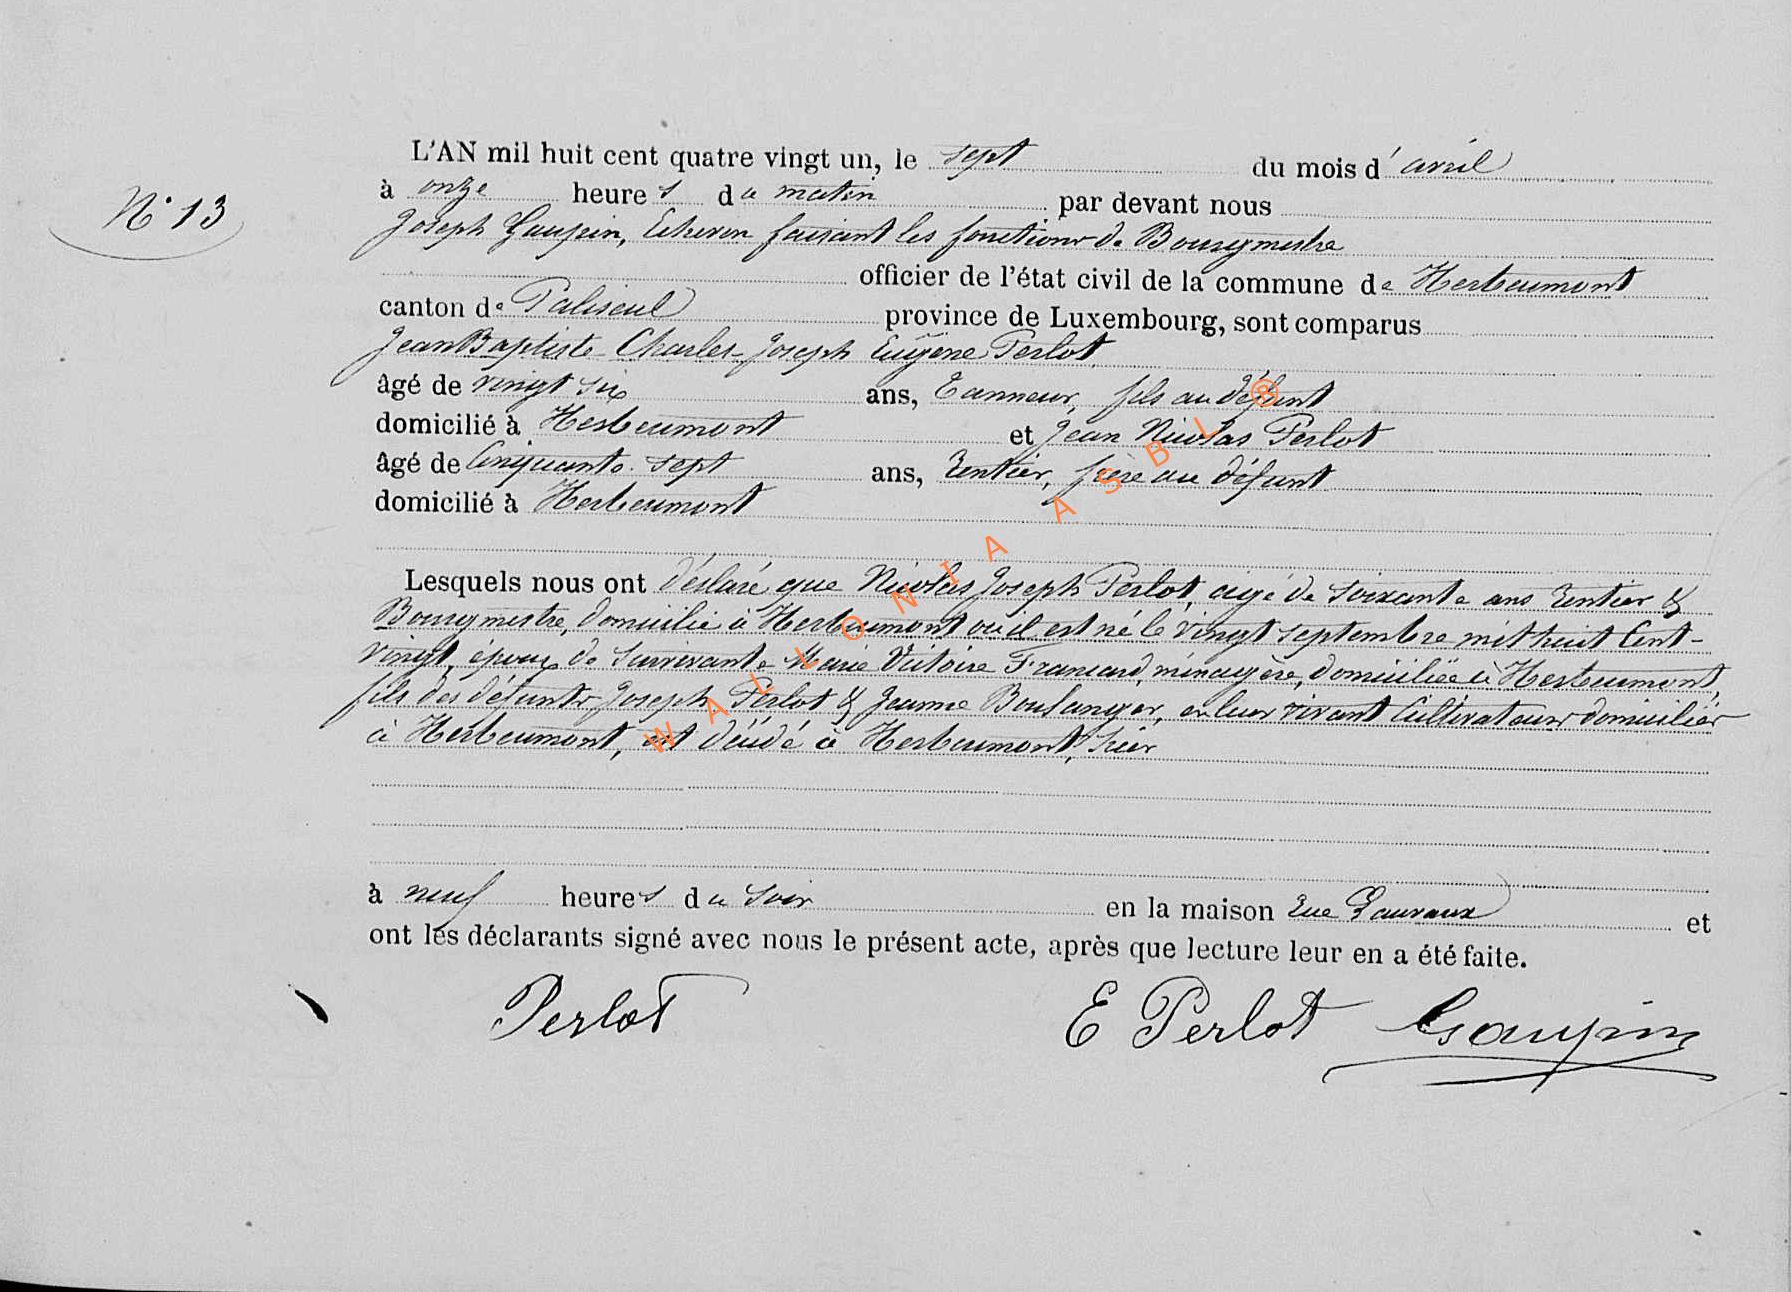 L'AN mil huit cent quatre vingt un, le sept du mois d'avril
N° 13
à onze heures du matin par devant nous
Joseph Gaupin, Echevin faisant les fonctions de Bourgmestre
officier de l'état civil de la commune de Herbeumont
canton de Paliseul province de Luxembourg, sont comparus
Jean Baptiste Charles Joseph Eugène Perlot
âgé de vingt six ans, Tanneur, fils au défunt
domicilié à Herbeumont et Jean Nicolas Perlot
âgé de Cinquante sept ans, Rentier, frère au défunt
domicilié à Herbeumont
Lesquels nous ont déclaré que Nicolas Joseph Perlot, agé de soixante ans Rentier &
Bourgmestre, domicilié à Herbeumont où il est né le vingt septembre mil huit Cent-
vingt, époux de survivante Marie Victoire Francard, ménagère, domiciliée à Herbeumont,
fils des défunts Joseph Perlot & Jeanne Boulanger, en leur vivant Cultivateurs domiciliés
à Herbeumont, est décédé à Herbeumont, hier
à neuf heures du soir en la maison Rue Lauvaux et
ont les déclarants signé avec nous le présent acte, après que lecture leur en a été faite.
Perlot E Perlot Gaupin
WALLONIA ASBL ®